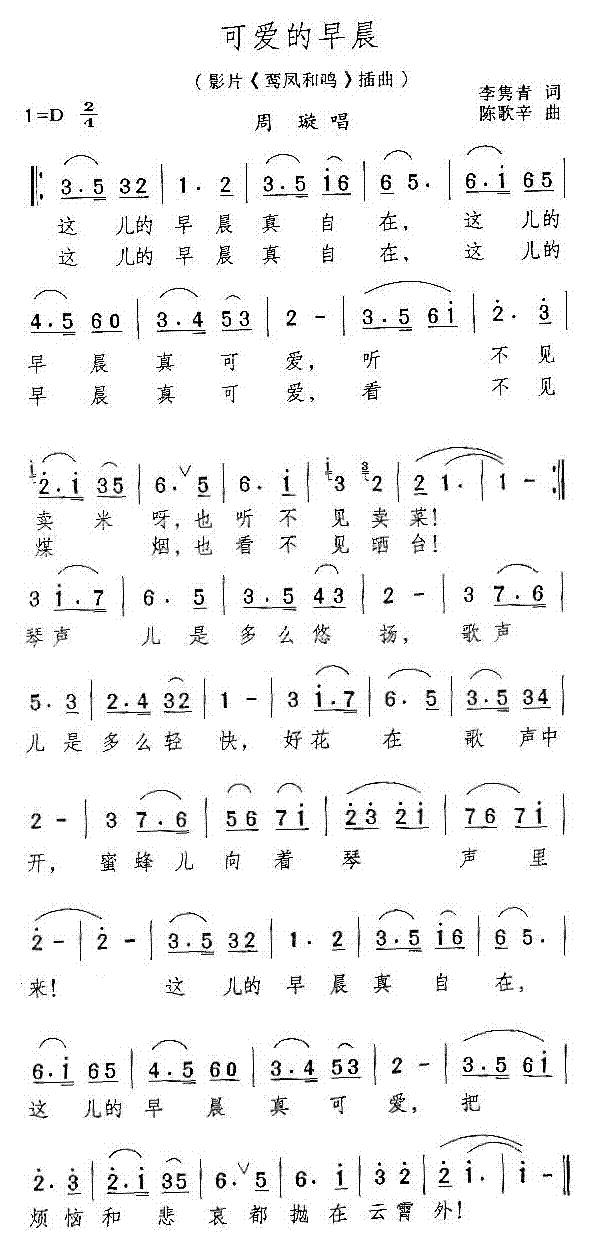 可爱的早晨
(影片《鸾凤和鸣》插曲)
李隽青 词
1=D 2/4
周 璇唱
陈歌辛 曲
‖: 3.5 32 | 1.2 | 3.5 i6 | 6 5. | 6.i 65 |
这 儿的早晨真 自 在, 这 儿的
这 儿的早晨真 自 在, 这 儿的
4.5 60 | 3.4 53 | 2 - | 3.5 6i | 2.3 |
早 晨 真 可 爱, 听 不见
早 晨 真 可 爱, 看 不见
i 2.i 35 | 6.∨5 | 6.i | i 3 3 2 | 2 1. | 1 - :‖
卖 米 呀,也 听 不 见 卖 菜!
煤 烟,也 看 不 见 晒 台!
3 i.7 | 6.5 | 3.5 43 | 2 - | 3 7.6 |
琴声 儿 是 多 么 悠 扬, 歌 声
5.3 | 2.4 32 | 1 - | 3 i.7 | 6.5 | 3.5 34 |
儿 是 多 么 轻 快, 好 花 在 歌 声中
2 - | 3 7.6 | 56 7i | 23 2i | 76 7i |
开, 蜜 蜂 儿 向 着 琴 声 里
2 - | 2 - | 3.5 32 | 1.2 | 3.5 i6 | 6 5. |
来! 这 儿的 早 晨 真 自 在,
6.i 65 | 4.5 60 | 3.4 53 | 2 - | 3.5 6i |
这 儿的 早 晨 真 可 爱, 把
2.3 | 2.i 35 | 6.∨5 | 6.i | 3 2 | 2 i. | i - ‖
烦 恼 和 悲 哀 都 抛 在 云 霄 外!